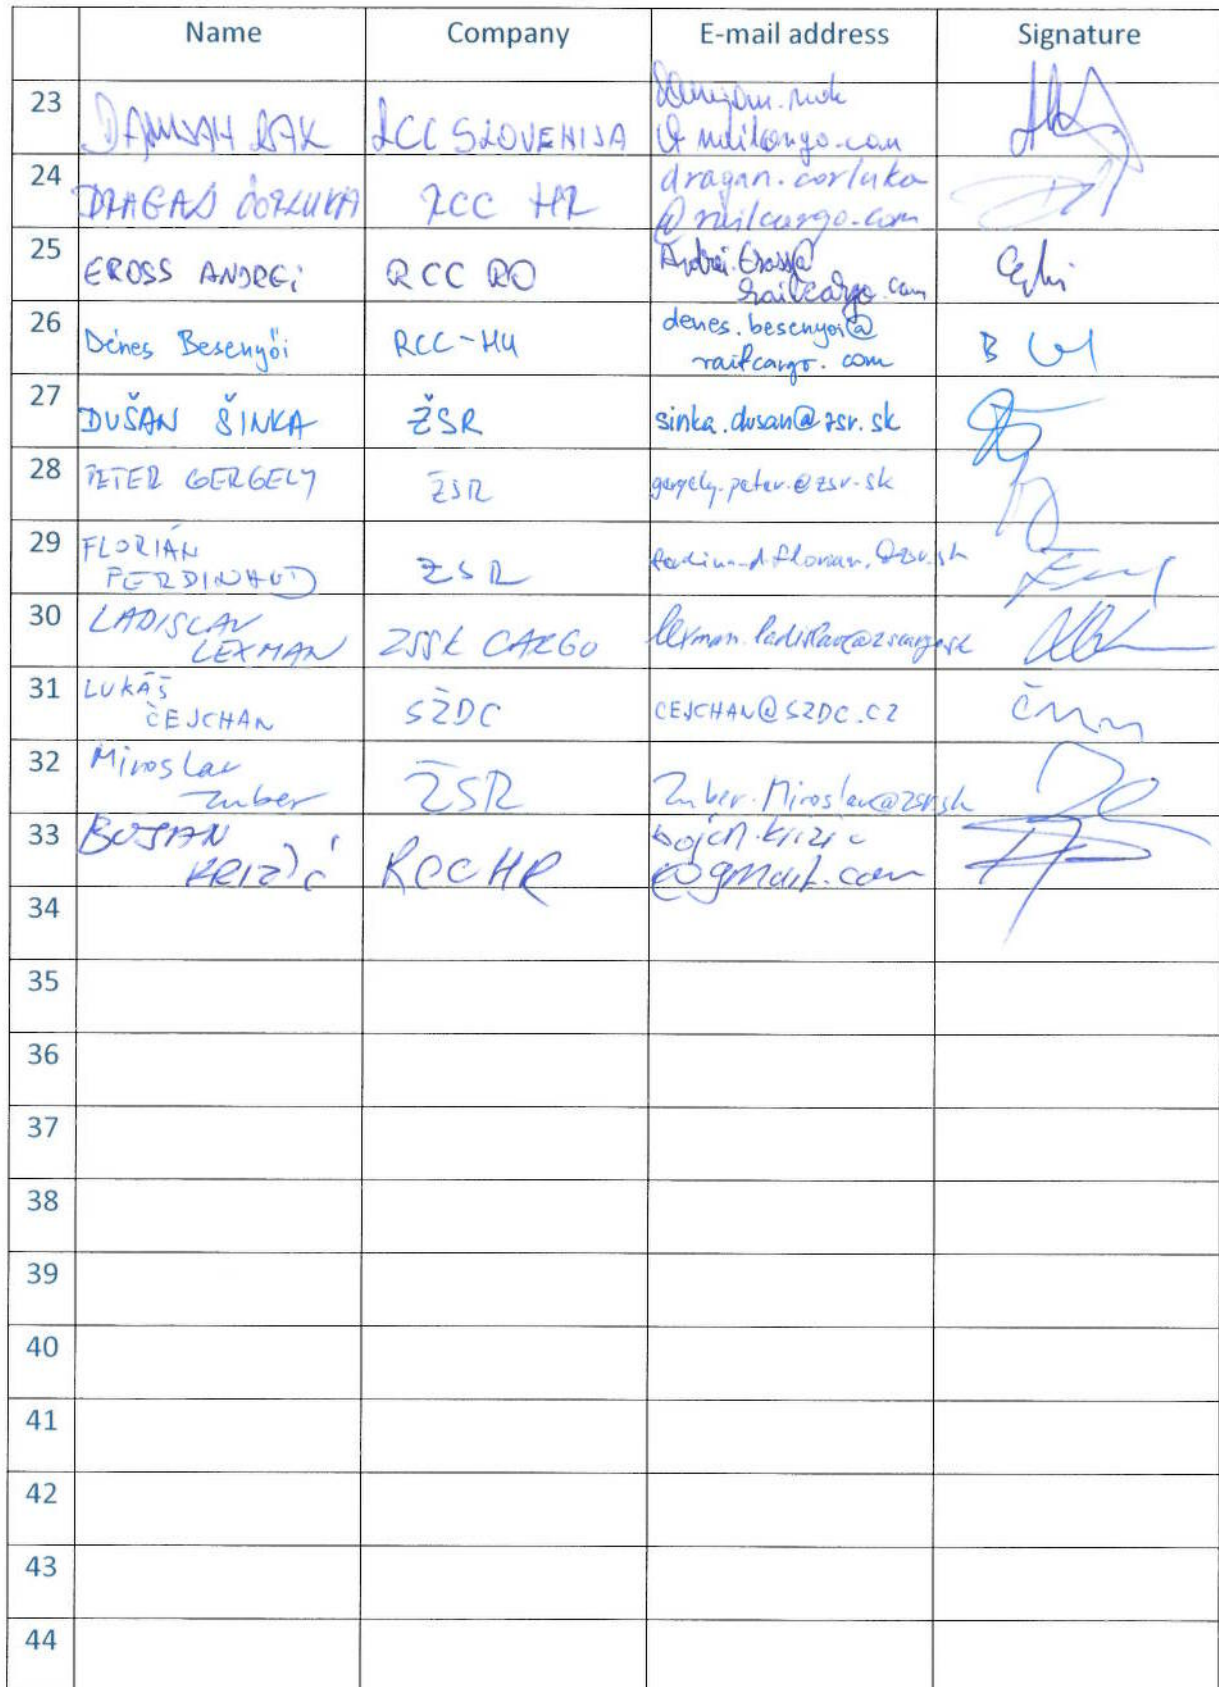 Name Company E-mail address Signature
23 DAMJAN RAK RCC SLOVENIJA damjan.rak
@railcargo.com
24 DRAGAN ĆORLUKA RCC HR dragan.corluka
@railcargo.com
25 EROSS ANDREI RCC RO Andrei.Eross@
railcargo.com
26 Dénes Besenyői RCC-HU denes.besenyoi@
railcargo.com
27 DUŠAN ŠINKA ŽSR sinka.dusan@zsr.sk
28 PETER GERGELY ŽSR gergely.peter.@zsr.sk
29 FLORIÁN
FERDINAND ŽSR ferdinand.florian.@zsr.sk
30 LADISLAV
LEXMAN ZSSK CARGO lexman.ladislav@zscargo.sk
31 LUKÁŠ
ČEJCHAN SŽDC CEJCHAN@SZDC.CZ
32 Miroslav
Zuber ŽSR Zuber.Miroslav@zsr.sk
33 BOJAN
KRIZIĆ RCC HR bojan.krizic
@gmail.com
34
35
36
37
38
39
40
41
42
43
44